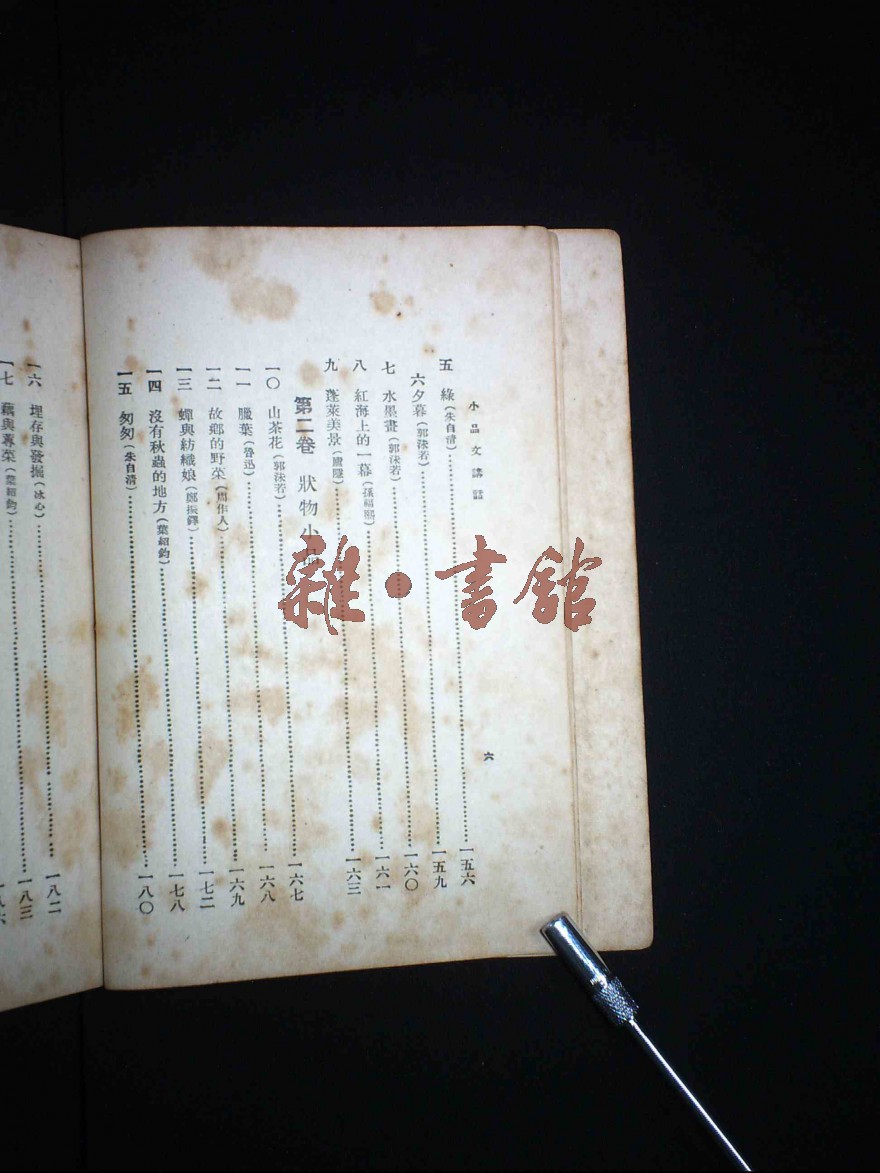 小品文講話
六
五 綠(朱自清)……一五六
六 夕暮(郭沫若)……一五九
七 水墨畫(郭沫若)……一六〇
八 紅海上的一幕(孫福熙)……一六一
九 蓬萊美景(廬隱)……一六三
第二卷 狀物小品
一〇 山茶花(郭沫若)……一六七
一一 臘葉(魯迅)……一六八
一二 故鄉的野菜(周作人)……一六九
一三 蟬與紡織娘(鄭振鐸)……一七二
一四 沒有秋蟲的地方(葉紹鈞)……一七八
一五 匆匆(朱自清)……一八〇
一六 埋存與發掘(冰心)……一八二
一七 藕與蓴菜(葉紹鈞)……一八三
雜·書館